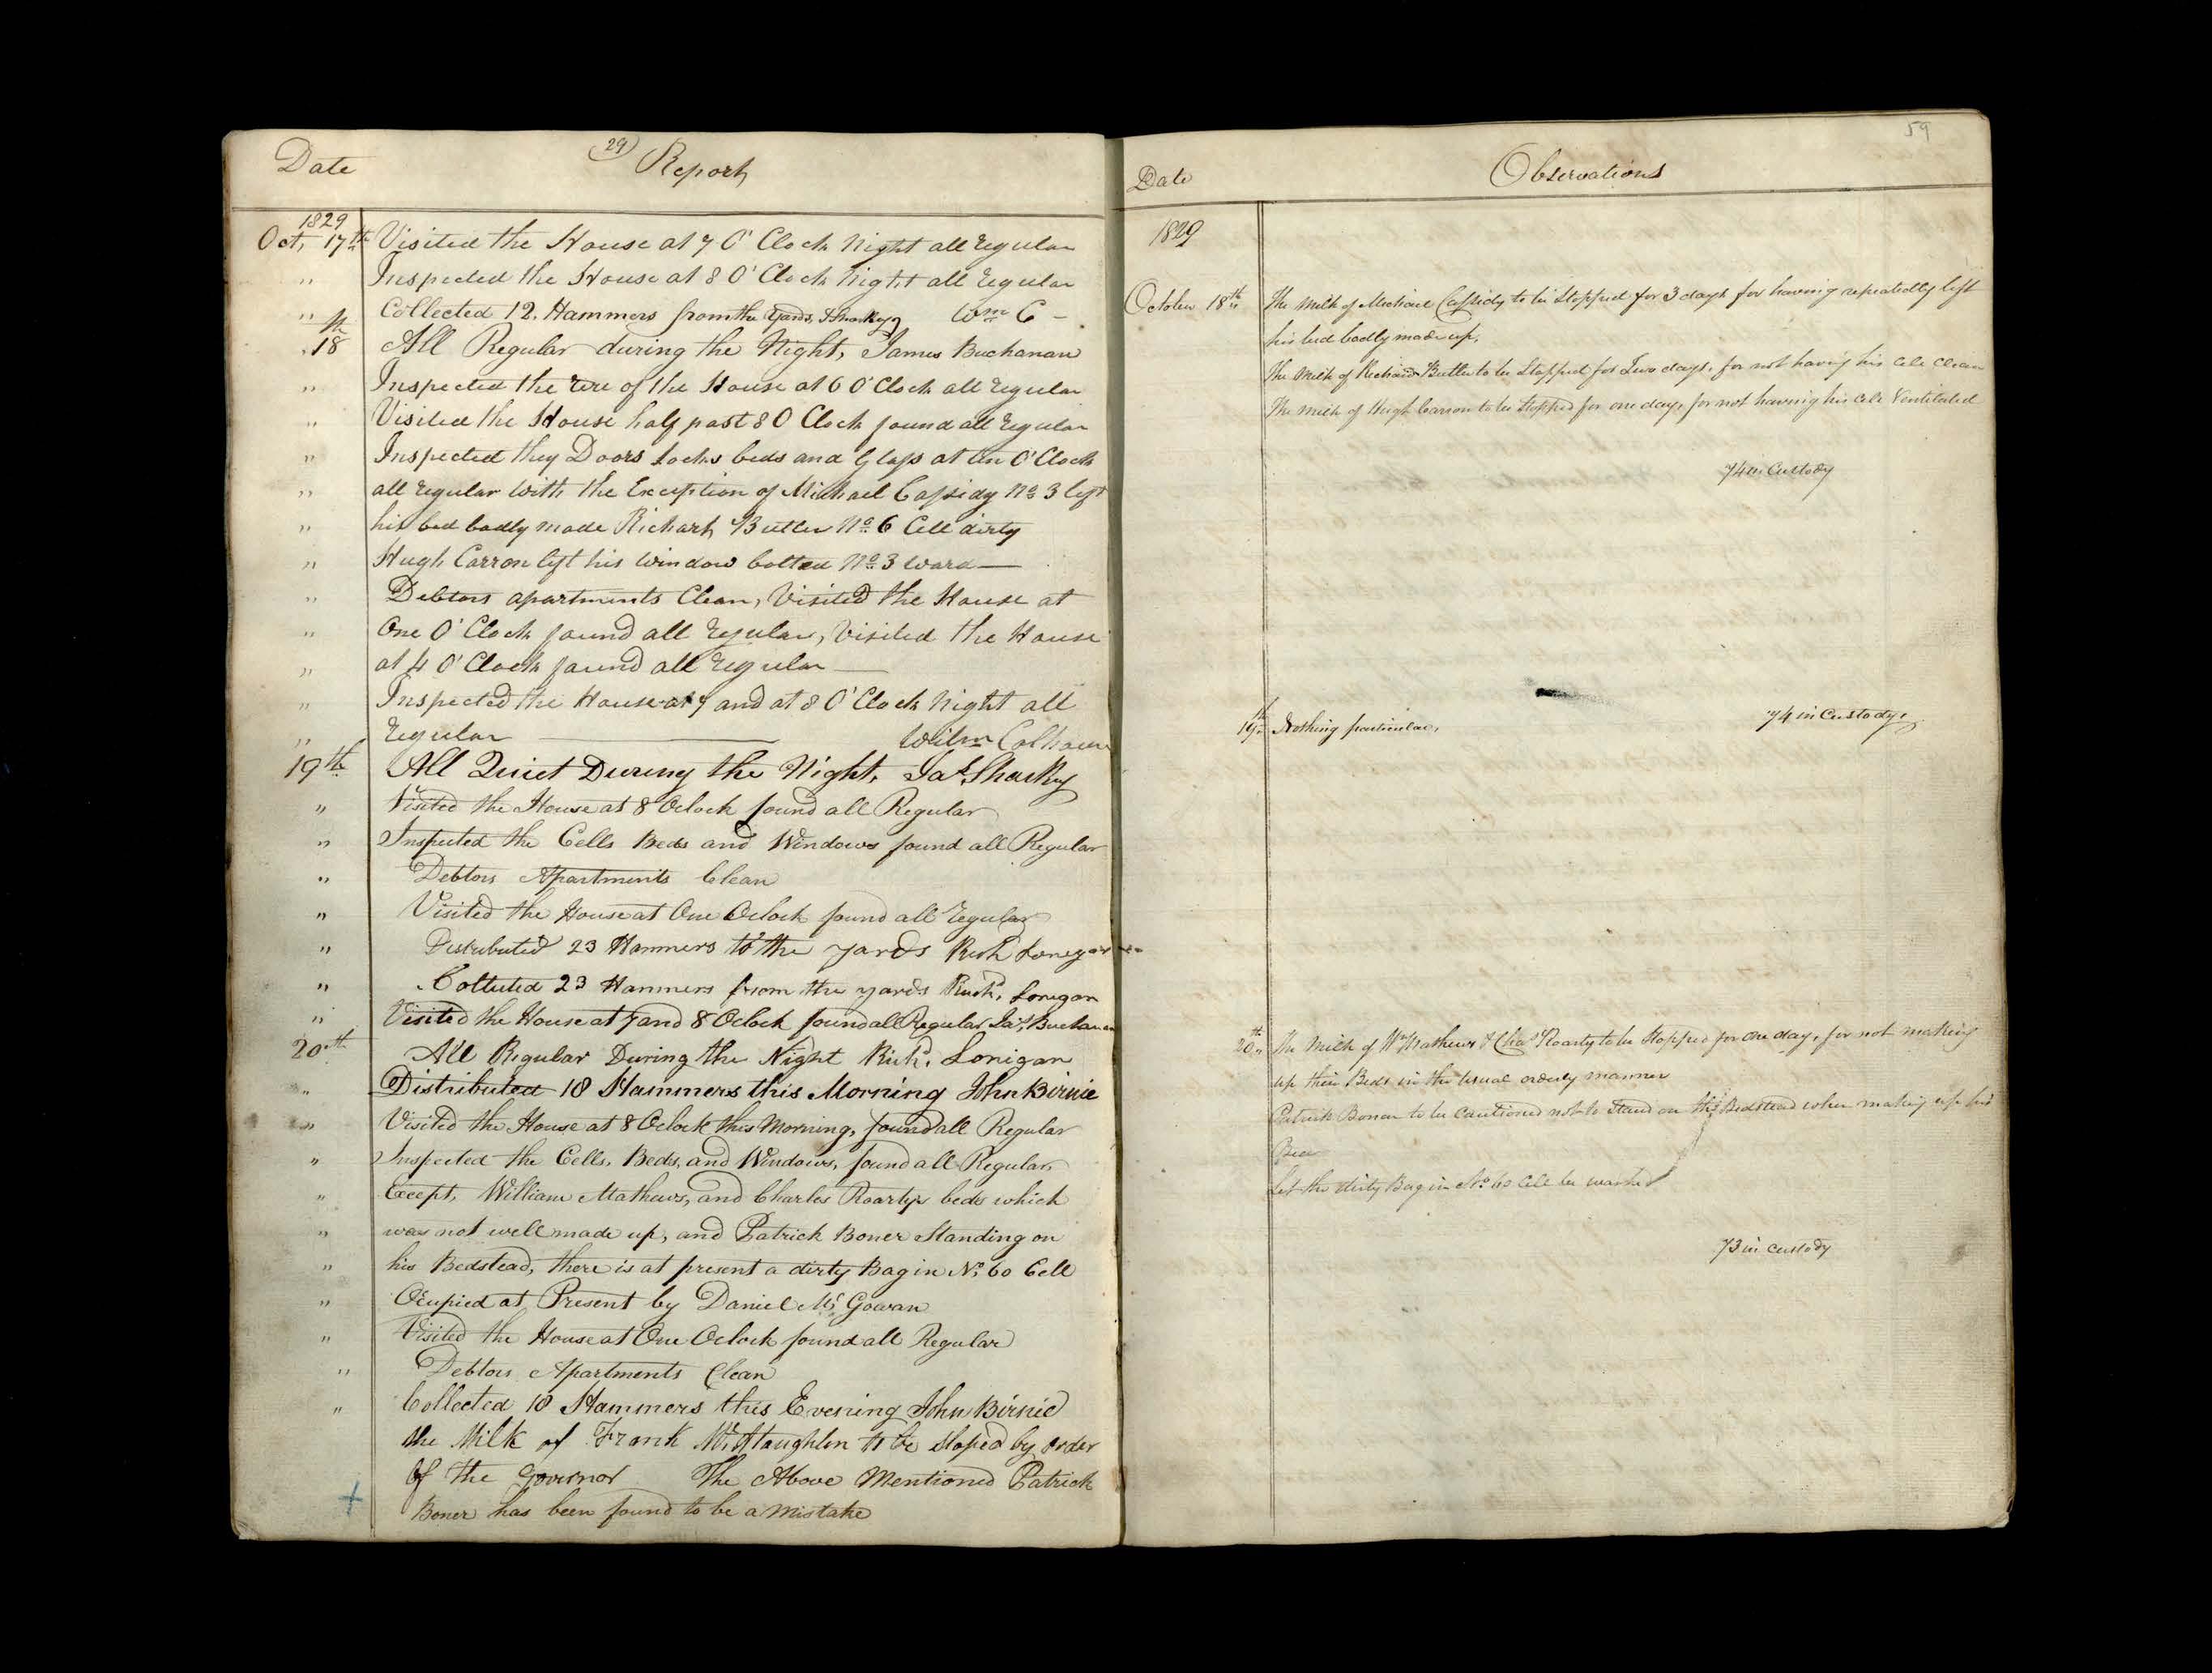 Date
(29) Report
1829
Oct, 17th Visited the House at 7 O' Clock Night all regular
" Inspected the House at 8 O' Clock Night all regular
" Collected 12. Hammers from the Yards, Sharkey Wm C -
18th All Regular during the Night, James Buchanan
" Inspected the rere of the House at 6 O' Clock all regular
" Visited the House half past 8 O Clock found all regular
" Inspected they Doors Locks beds and Glass at ten O'Clock
" all regular With the Exception of Michael Cassidy No 3 left
" his bed badly made Richart Butler No 6 Cell dirty
" Hugh Carron left his window bolted No 3 ward
" Debtors apartments Clean, Visited the House at
" One O' Clock found all regular, Visited the House
" at 4 O' Clock found all regular
" Inspected the House at 7 and at 8 O' Clock Night all
" regular Wilm Colhoun
19th All Quiet During the Night, Jas. Sharkey
" Visited the House at 8 Oclock found all Regular
" Inspected the Cells Beds and Windows found all Regular
" Debtors Apartments Clean
" Visited the House at One Oclock found all regular
" Distributed 23 Hammers to the yards Richd Lonegan
" Collected 23 Hammers from the yards Richd, Lonegan
" Visited the House at 7 and 8 Oclock found all Regular Jas. Buchanan
20th All Regular During the Night Richd. Lonigan
" Distributed 18 Hammers this Morning John Birnie
" Visited the House at 8 Oclock this Morning, found all Regular
" Inspected the Cells, Beds, and Windows, found all Regular,
" Except, William Mathews, and Charles Roartys beds which
" was not well made up, and Patrick Boner Standing on
" his Bedstead, there is at present a dirty Bag in No. 60 Cell
" Ocupied at Present by Daniel Mc Gowan
" Visited the House at One Oclock found all Regular
" Debtors Apartments Clean
" Collected 18 Hammers this Evening John Birnie
the Milk of Frank McHaughlin to be stoped by order
of the Governor The Above Mentioned Patrick
+ Boner has been found to be a Mistake
59
Date
Observations
1829
October 18th The Milk of Michael Cassidy to be Stopped for 3 days for having repeatedly left
his bed badly made up.
The Milk of Richard Butler to be Stopped for Two days, for not having his Cell Clean
The Milk of Hugh Carron to be Stopped for one day, for not having his Cell Ventilated
74 in Custody
19th Nothing particular, 74 in Custody,
20th The Milk of Wm Mathews & Chas Roarty to be Stopped for One day, for not making
up their Beds in the usual orderly manner
Patrick Boner to be Cautioned not to Stand on the Bedstead when making up his
Bed
Let the dirty Bag in No 60 Cell be washed
73 in Custody